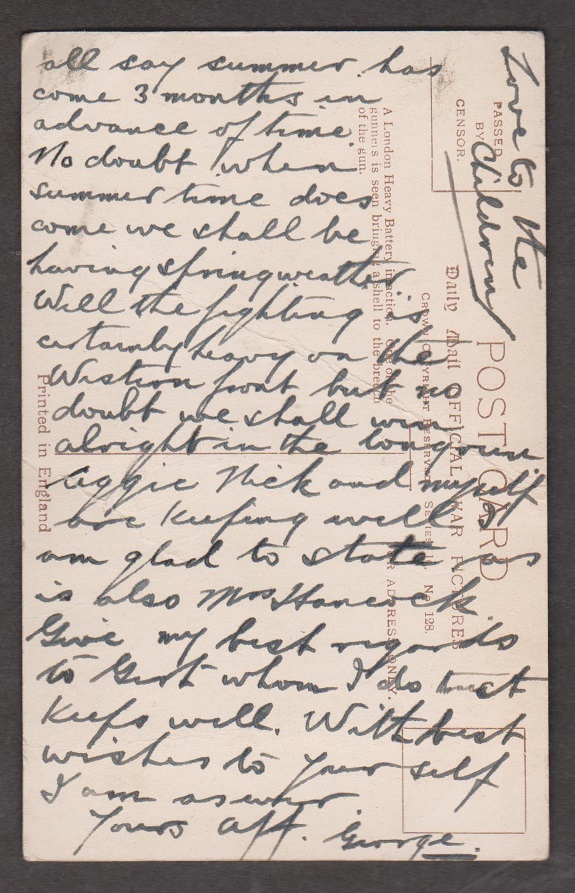 all say summer has
come 3 months in
advance of time.
No doubt when
summer time does
come we shall be
having spring weather
Will the fighting is
certainly heavy on the
Western front but no
doubt we shall win
alright in the long run
Aggie Nick and myself
are keeping well I
am glad to state as
is also Mrs Hancock.
Give my best regards
to Gert whom I do trust
keeps well. With best
wishes to your self
I am as ever
Yours aff. George.
Love to the
Children
PASSED
BY
CENSOR.
POST CARD
Daily Mail OFFICIAL WAR PICTURES
CROWN COPYRIGHT RESERVED. SERIES No. 128.
ADDRESS ONLY.
A London Heavy Battery in action. One of the
gunners is seen bringing a shell to the breech
of the gun.
Printed in England